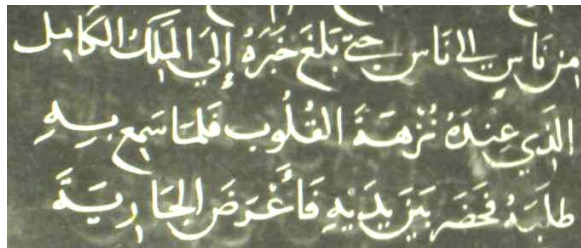 مِن نَاسٍ إلى نَاس حتىّ بَلغَ خَبَرَهُ إِليَ المَلَك الكَامِل
الذِي عِندَهُ نُزهَةَ القُلُوب فَلمَا سَمِع بِهِ
طلبَهُ فحَضَرَ بَينَ يَدَيْهِ فَأعْرَضَ الجَارِيَةَ